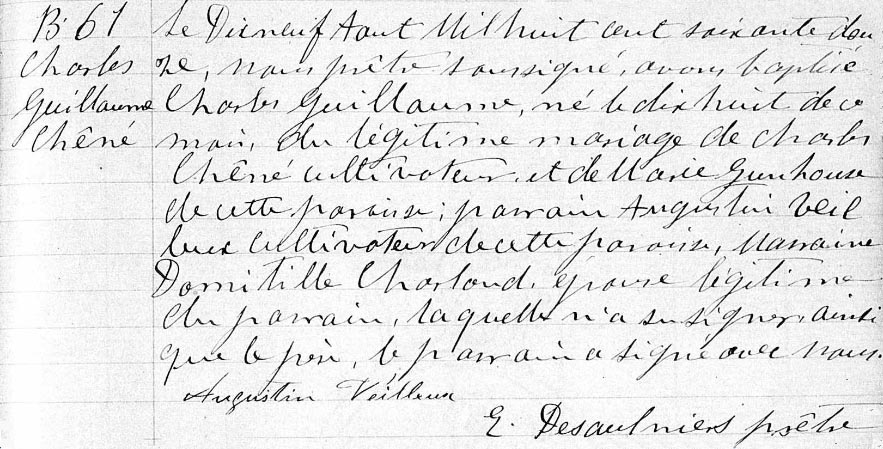 B 61 Le Dixneuf Aout Mil huit cent soixante dou
Charles ze, nous prêtre soussigné, avons baptisé
Guillaume Charles Guillaume, né le dix huit de ce
Chêné mois, du légitime mariage de Charles
Chêné cultivateur et de Marie Gunhouse
de cette paroisse; parrain Augustin Veil
leux Cultivateur de cette paroisse, Marraine
Domitille Charland, épouse légitime
du parrain, laquelle n'a su signer, ainsi
que le père, le parrain a signé avec nous.
Augustin Veilleux
E. Desaulniers prêtre